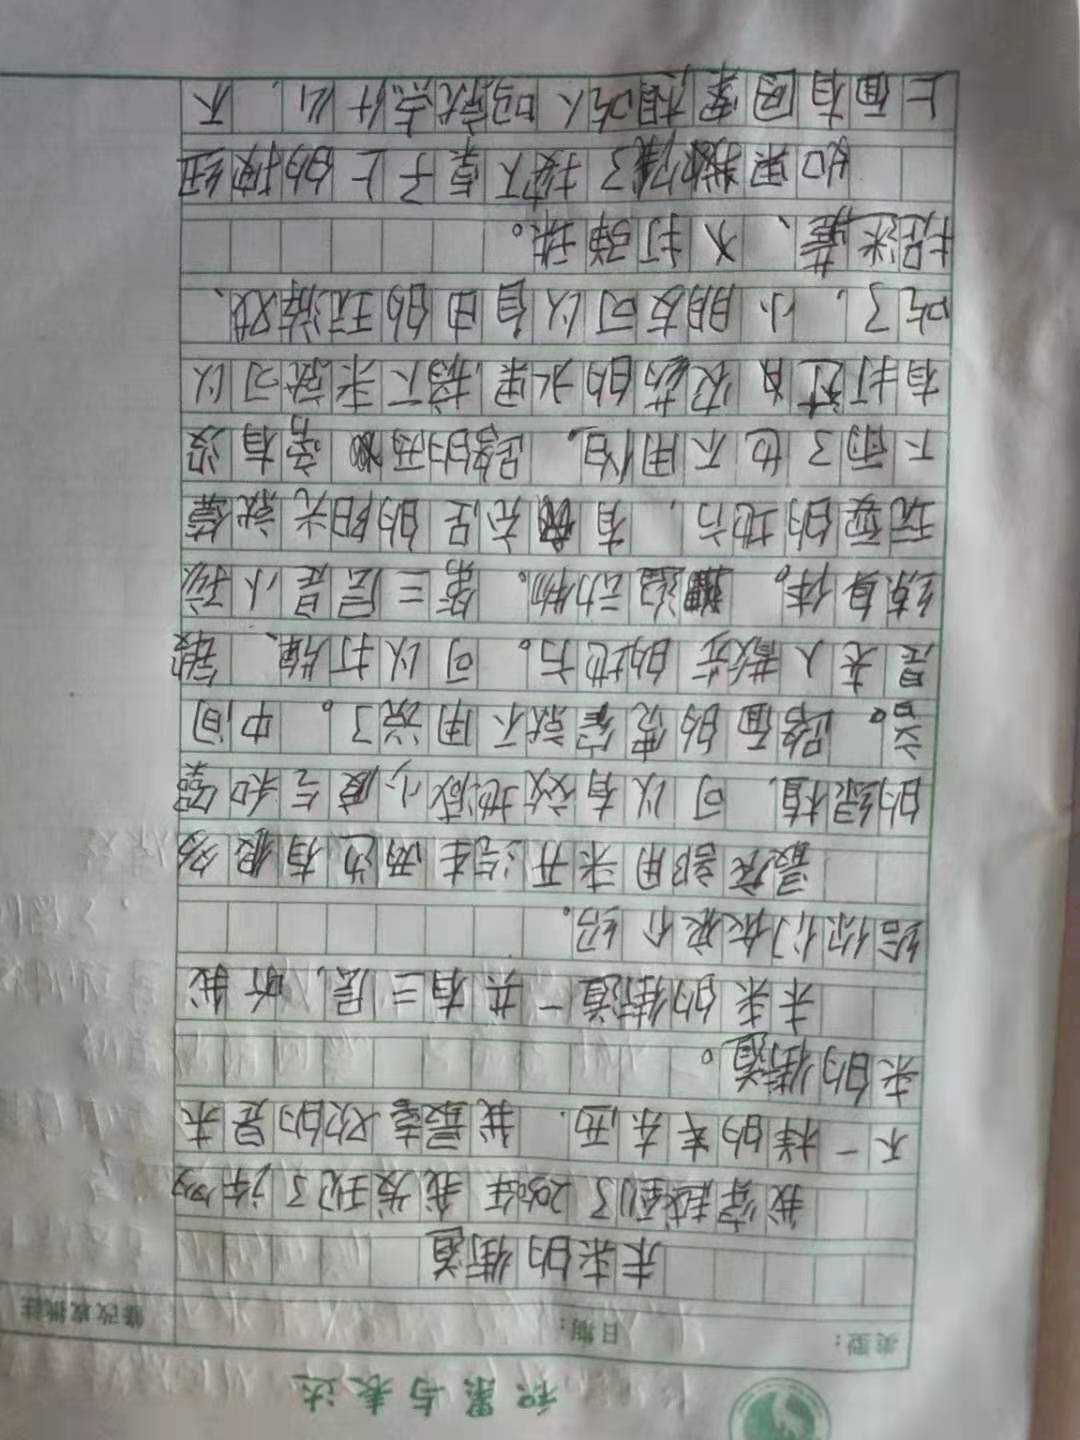 积累与表达
类型：
日期：
修改或批注
未来的街道
我穿越到了2050年我发现了许多
不一样的车东西．我最喜欢的是未
来的街道。
未来的街道一共有三层，听我
给你们来介绍。
最底部用来开汽车两边有很多
的绿植，可以有效地减小废气和噪
音。路面的宽窄就不用说了。中间
是老人散步的地方。可以打牌、锻
炼身体。遛动物。第三层是小孩
玩耍的地方，有充足的阳光就算
下雨了也不用怕。路的两旁有没
有打过农药的水果，摘下来就可以
吃了，小朋友可以自由的玩游戏、
捉迷藏、打弹珠。
如果你饿了按下桌子上的按纽
上面有图案想吃人吗就点什么，不